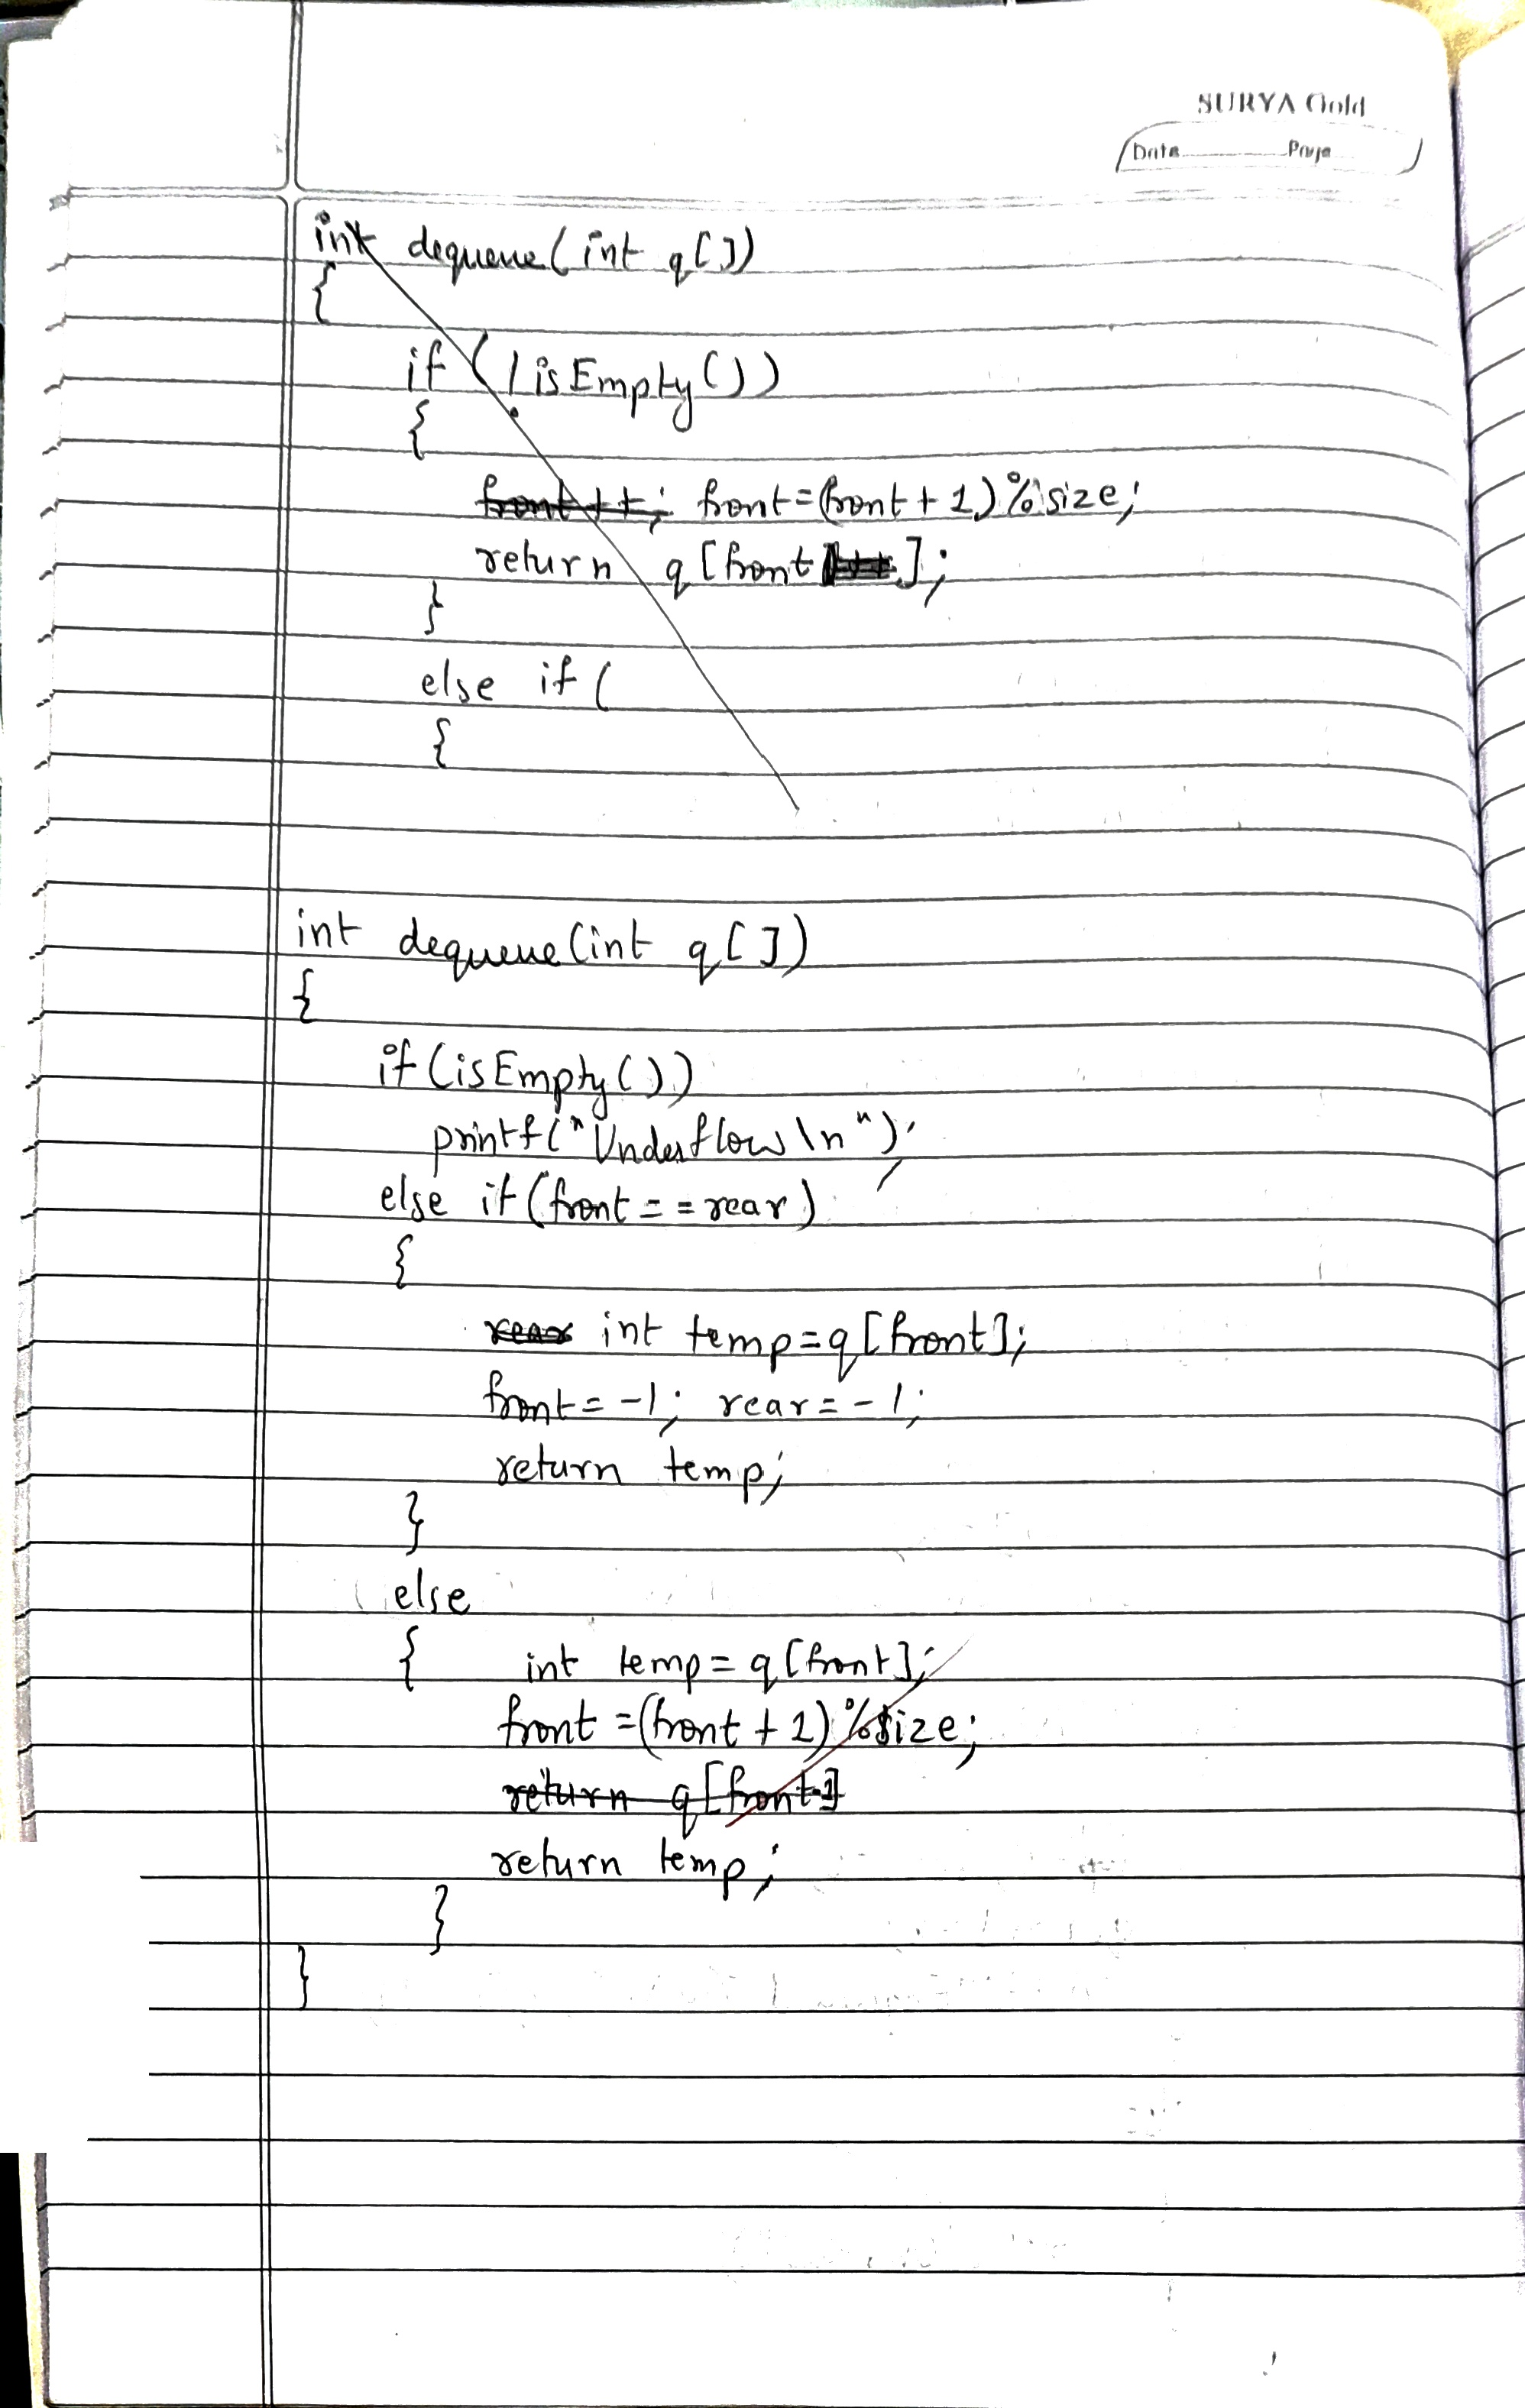 SURYA Gold
Date Page
int dequeue(int q[])
{
if (!isEmpty())
{
front++; front=(front+1)%size;
return q[front];
}
else if (
{
int dequeue(int q[])
{
if(isEmpty())
printf("Underflow\n");
else if(front==rear)
{
rear int temp=q[front];
front=-1; rear=-1;
return temp;
}
else
{ int temp=q[front];
front=(front+1)%size;
return q[front-1]
return temp;
}
}